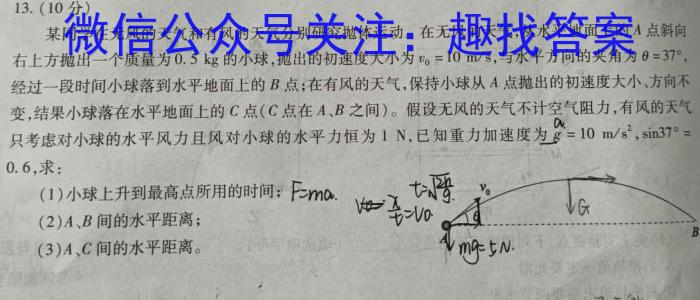 13.(10分)
微信公众号关注：趣找答案
某同学在无风的天气和有风的天气分别研究抛体运动。在无风的天气,从水平地面上的A点斜向
右上方抛出一个质量为0.5 kg的小球,抛出的初速度大小为v₀=10 m/s,与水平方向的夹角为θ=37°,
经过一段时间小球落到水平地面上的B点;在有风的天气,保持小球从A点抛出的初速度大小、方向不
变,结果小球落在水平地面上的C点(C点在A、B之间)。假设无风的天气不计空气阻力,有风的天气
只考虑对小球的水平风力且风对小球的水平力恒为1 N,已知重力加速度为g=10 m/s²,sin37°=
0.6,求:
(1)小球上升到最高点所用的时间;
F=ma
(2)A、B间的水平距离;
(3)A、C间的水平距离。
t=√2h/g
v₀
θ
G
A
B
mg=5N.